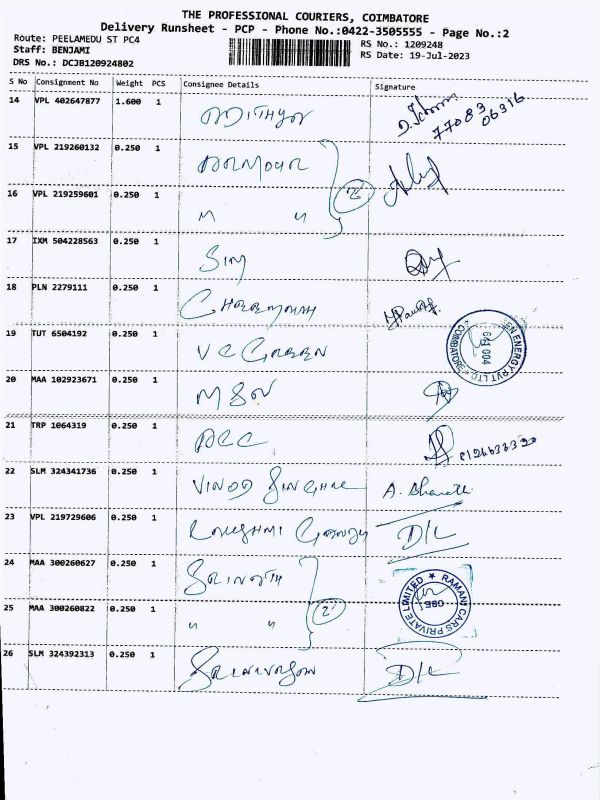 THE PROFESSIONAL COURIERS, COIMBATORE
Delivery Runsheet - PCP - Phone No.:0422-3505555 - Page No.:2
Route: PEELAMEDU ST PC4
RS No.: 1209248
Staff: BENJAMI
RS Date: 19-Jul-2023
DRS No.: DCJB120924802
S No Consignment No Weight PCS Consignee Details Signature
14 VPL 402647877 1.600 1 ADITHYA
77083 06316
15 VPL 219260132 0.250 1 ARMOUR
16 VPL 219259601 0.250 1 〃 〃 2
17 IXM 504228563 0.250 1 SIM
18 PLN 2279111 0.250 1
19 TUT 6504192 0.250 1 VC GREEN
EN ENERGY PVT LTD COIMBATORE 641 004
20 MAA 102923671 0.250 1
21 TRP 1064319 0.250 1 ACC
22 SLM 324341736 0.250 1 VINOD SINGHAL A. Bharathi
23 VPL 219729606 0.250 1 D/L
24 MAA 300260627 0.250 1
RAMANI CARS PRIVATE LIMITED CBE
25 MAA 300260822 0.250 1 〃 〃 2
26 SLM 324392313 0.250 1 D/L